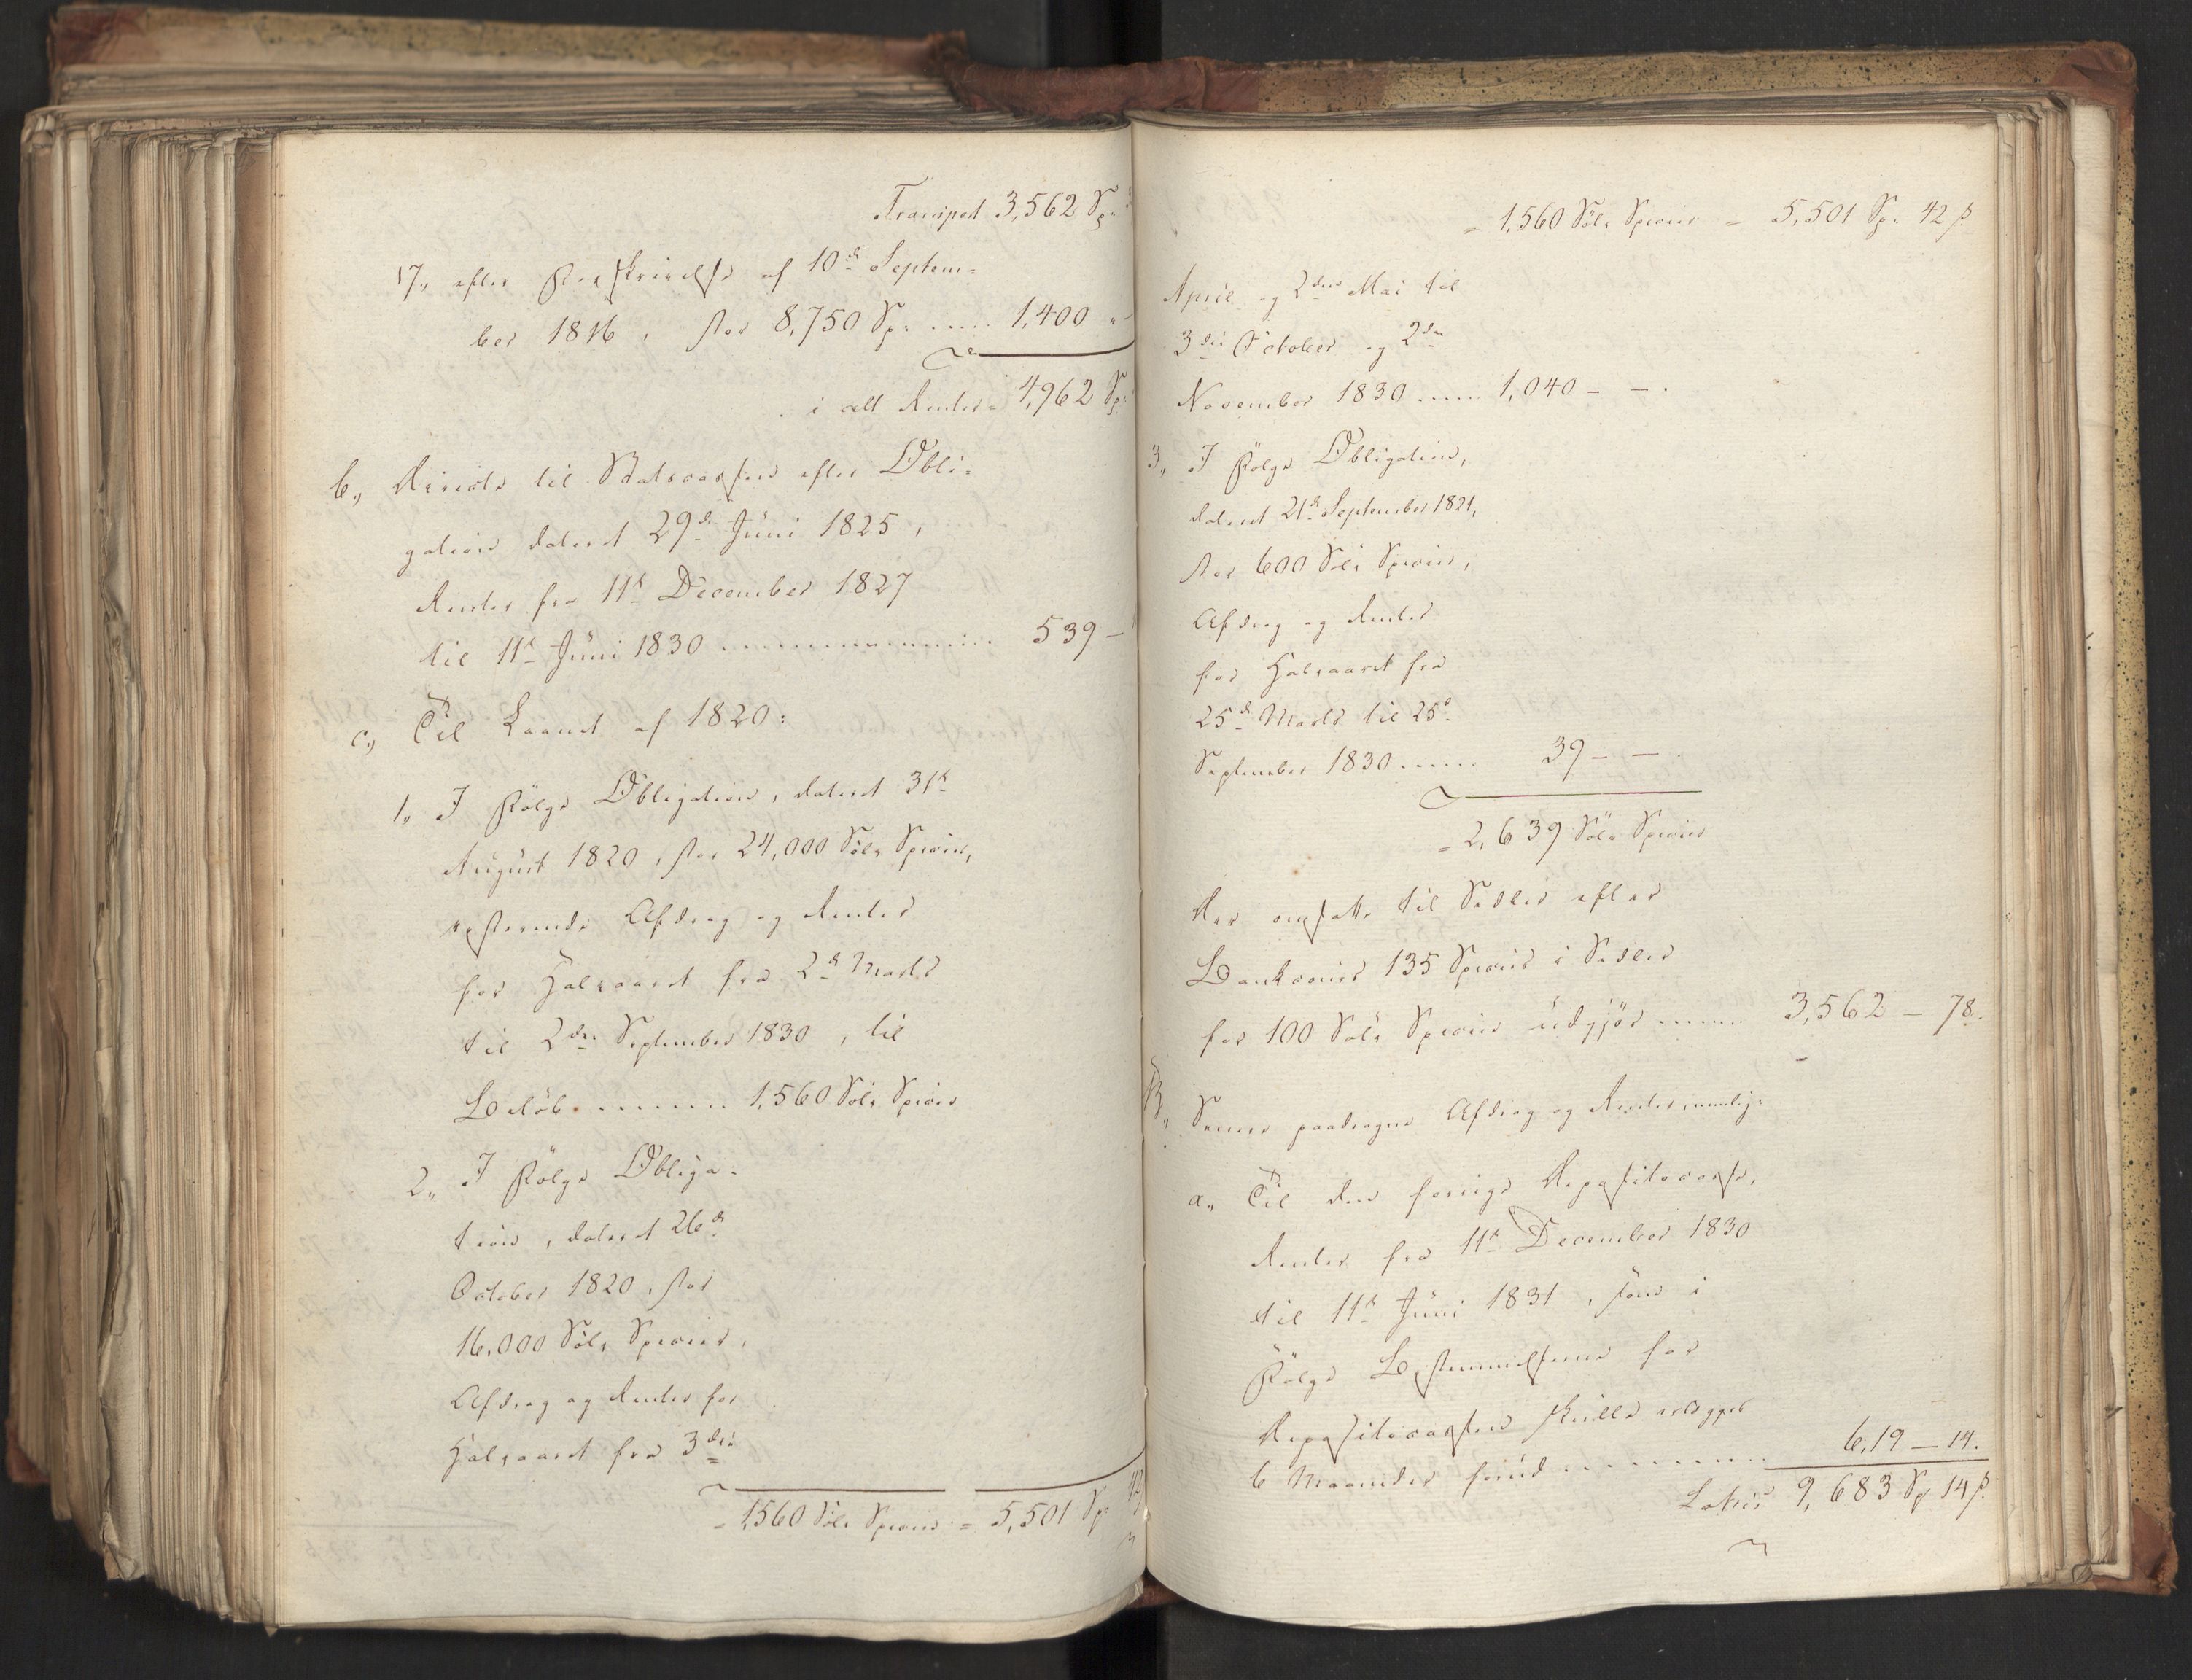 Transport 3,562 Sp:
17, efter Forskrivelse af 10de Septem=
ber 1816, stor 8,750 Sp: ..... 1,400 "
i alt Renter = 4,962 Sp:
b., til Statscassen efter Obli=
gation dateret 29de Juni 1825,
Renter fra 11te December 1827
til 11te Juni 1830 .................. 539 -
c., Til Laanet af 1820:
1. I Følge Obligation, dateret 31te
August 1820, stor 24,000 Sölv Species,
resterende Afdrag og Renter
for Halvaaret fra 2den Marts
til 2den September 1830, til
Belöb ........... 1,560 Sölv Species
2., I Følge Obliga=
tion, dateret 26de
October 1820, stor
16,000 Sölv Species,
Afdrag og Renter for
Halvaaret fra 3die
= 1,560 Sölv Species = 5,501 Sp: 42
= 1,560 Sölv Species = 5,501 Sp: 42 ß
April og 2den Mai til
3die October og 2den
November 1830 ...... 1,040 - - .
3, I Følge Obligation,
dateret 21de September 1821,
stor 600 Sölv Species,
Afdrag og Renter
for Halvaaret fra
25de Marts til 25de
September 1830 ...... 39 - - .
= 2,639 Sölv Species
der omsatte til Sedler efter
Bankcours 135 Species i Sedler
for 100 Sölv Species udgjör ...... 3,562 - 78.
B., Senere paadragne Afdrag og Renter, nemlig:
a., Til den forrige Depositocasse,
Renter fra 11te December 1830
til 11te Juni 1831, som i
Følge Bestemmelserne for
Depositocassen skulle erlægges
6 Maaneder forud ........... 619 - 14.
Latus 9,683 Sp 14 ß.